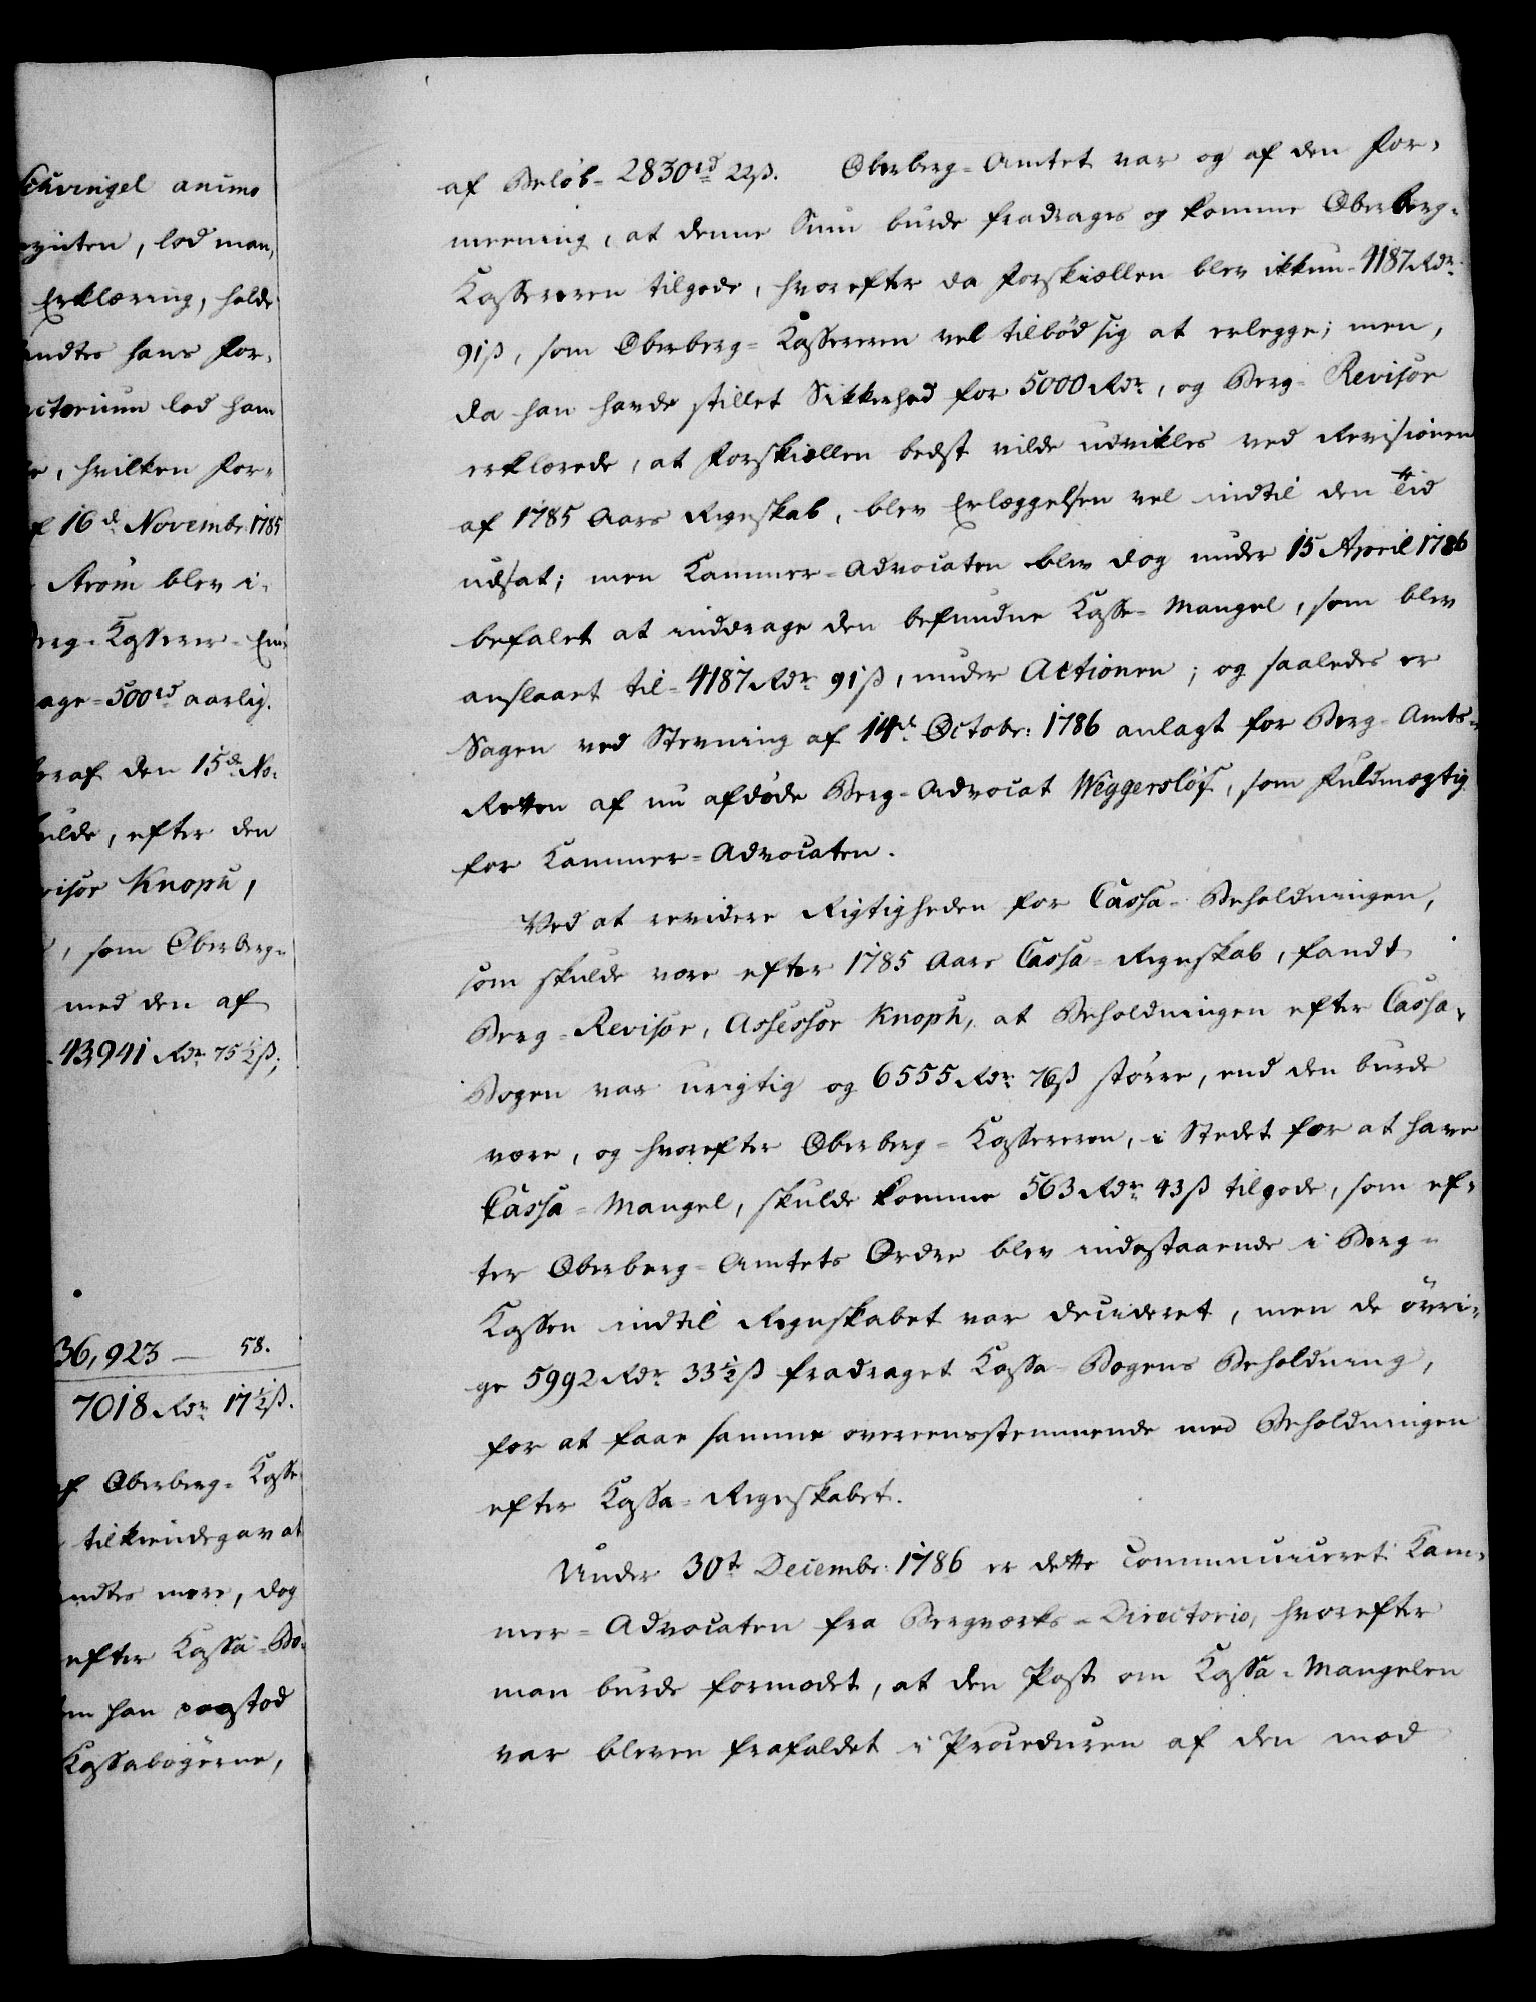 Schvingel animo
, lod man,
Erklæring, holde
hans For-
lod ham
, hvilken For-
16d. Novembr. 1785
Strøm blev i-
Kasserer-
500rd aarlig.
den 15de No-
, efter den
Knoph,
, som Oberberg-
med den af
43,941 Rdr. 75½ß;
36,923 — 58.
7018 Rdr. 17½ß.
Oberberg-Kasse-
tilkiendegav at
mere, dog
efter Kassa-Bo-
han paastod
Kassabøgerne,
af Beløb- 2830rd 22ß. Oberberg-Amtet var og af den For-
meening, at denne Sum burde fradrages og komme Oberberg-
Kassereren tilgode, hvorefter da Forskiællen blev ikkun- 4187 Rdr.
91ß, som Oberberg-Kassereren vel tilbød sig at erlegge; men,
da han havde stillet Sikkerhed for 5000 Rdr., og Berg-Revisor
erklærede, at Forskiællen bedst vilde udvikles ved Revisionen
af 1785 Aars Regnskab, blev Erlæggelsen vel indtil den Tid
udsat; men Kammer-Advocaten blev dog under 15 April 1786
befalet at inddrage den befundne Kasse-Mangel, som blev
anslaaet til- 4187 Rdr. 91ß, under Actionen; og saaledes er
Sagen ved Stevning af 14d. Octobr: 1786 anlagt for Berg-Amts-
Retten af nu afdøde Berg-Advocat Weggersløf, som Fuldmægtig
for Kammer-Advocaten.
Ved at revidere Rigtigheden for Cassa-Beholdningen,
som skulde være efter 1785 Aars Cassa-Regnskab, fandt
Berg-Revisor, Assessor Knoph, at Beholdningen efter Cassa-
Bogen var urigtig og 6555 Rdr. 76ß større, end den burde
være, og hvorefter Oberberg-Kassereren, i Stedet for at have
Cassa-Mangel, skulde komme 563 Rdr. 43ß tilgode, som ef-
ter Oberberg-Amtets Ordre blev indestaaende i Berg-
Kassen indtil Regnskabet var decideret, men de øvri-
ge 5992 Rdr. 33½ß fradraget Kassa-Bogens Beholdning,
for at faae samme overeensstemmende med Beholdningen
efter Kassa-Regnskabet.
Under 30t Decembr: 1786 er dette communiceret Kam-
mer-Advocaten fra Bergværks-Directorio, hvorefter
man burde formodet, at den Post om Kassa-Mangelen
var bleven frafaldet i Proceduren af den mod